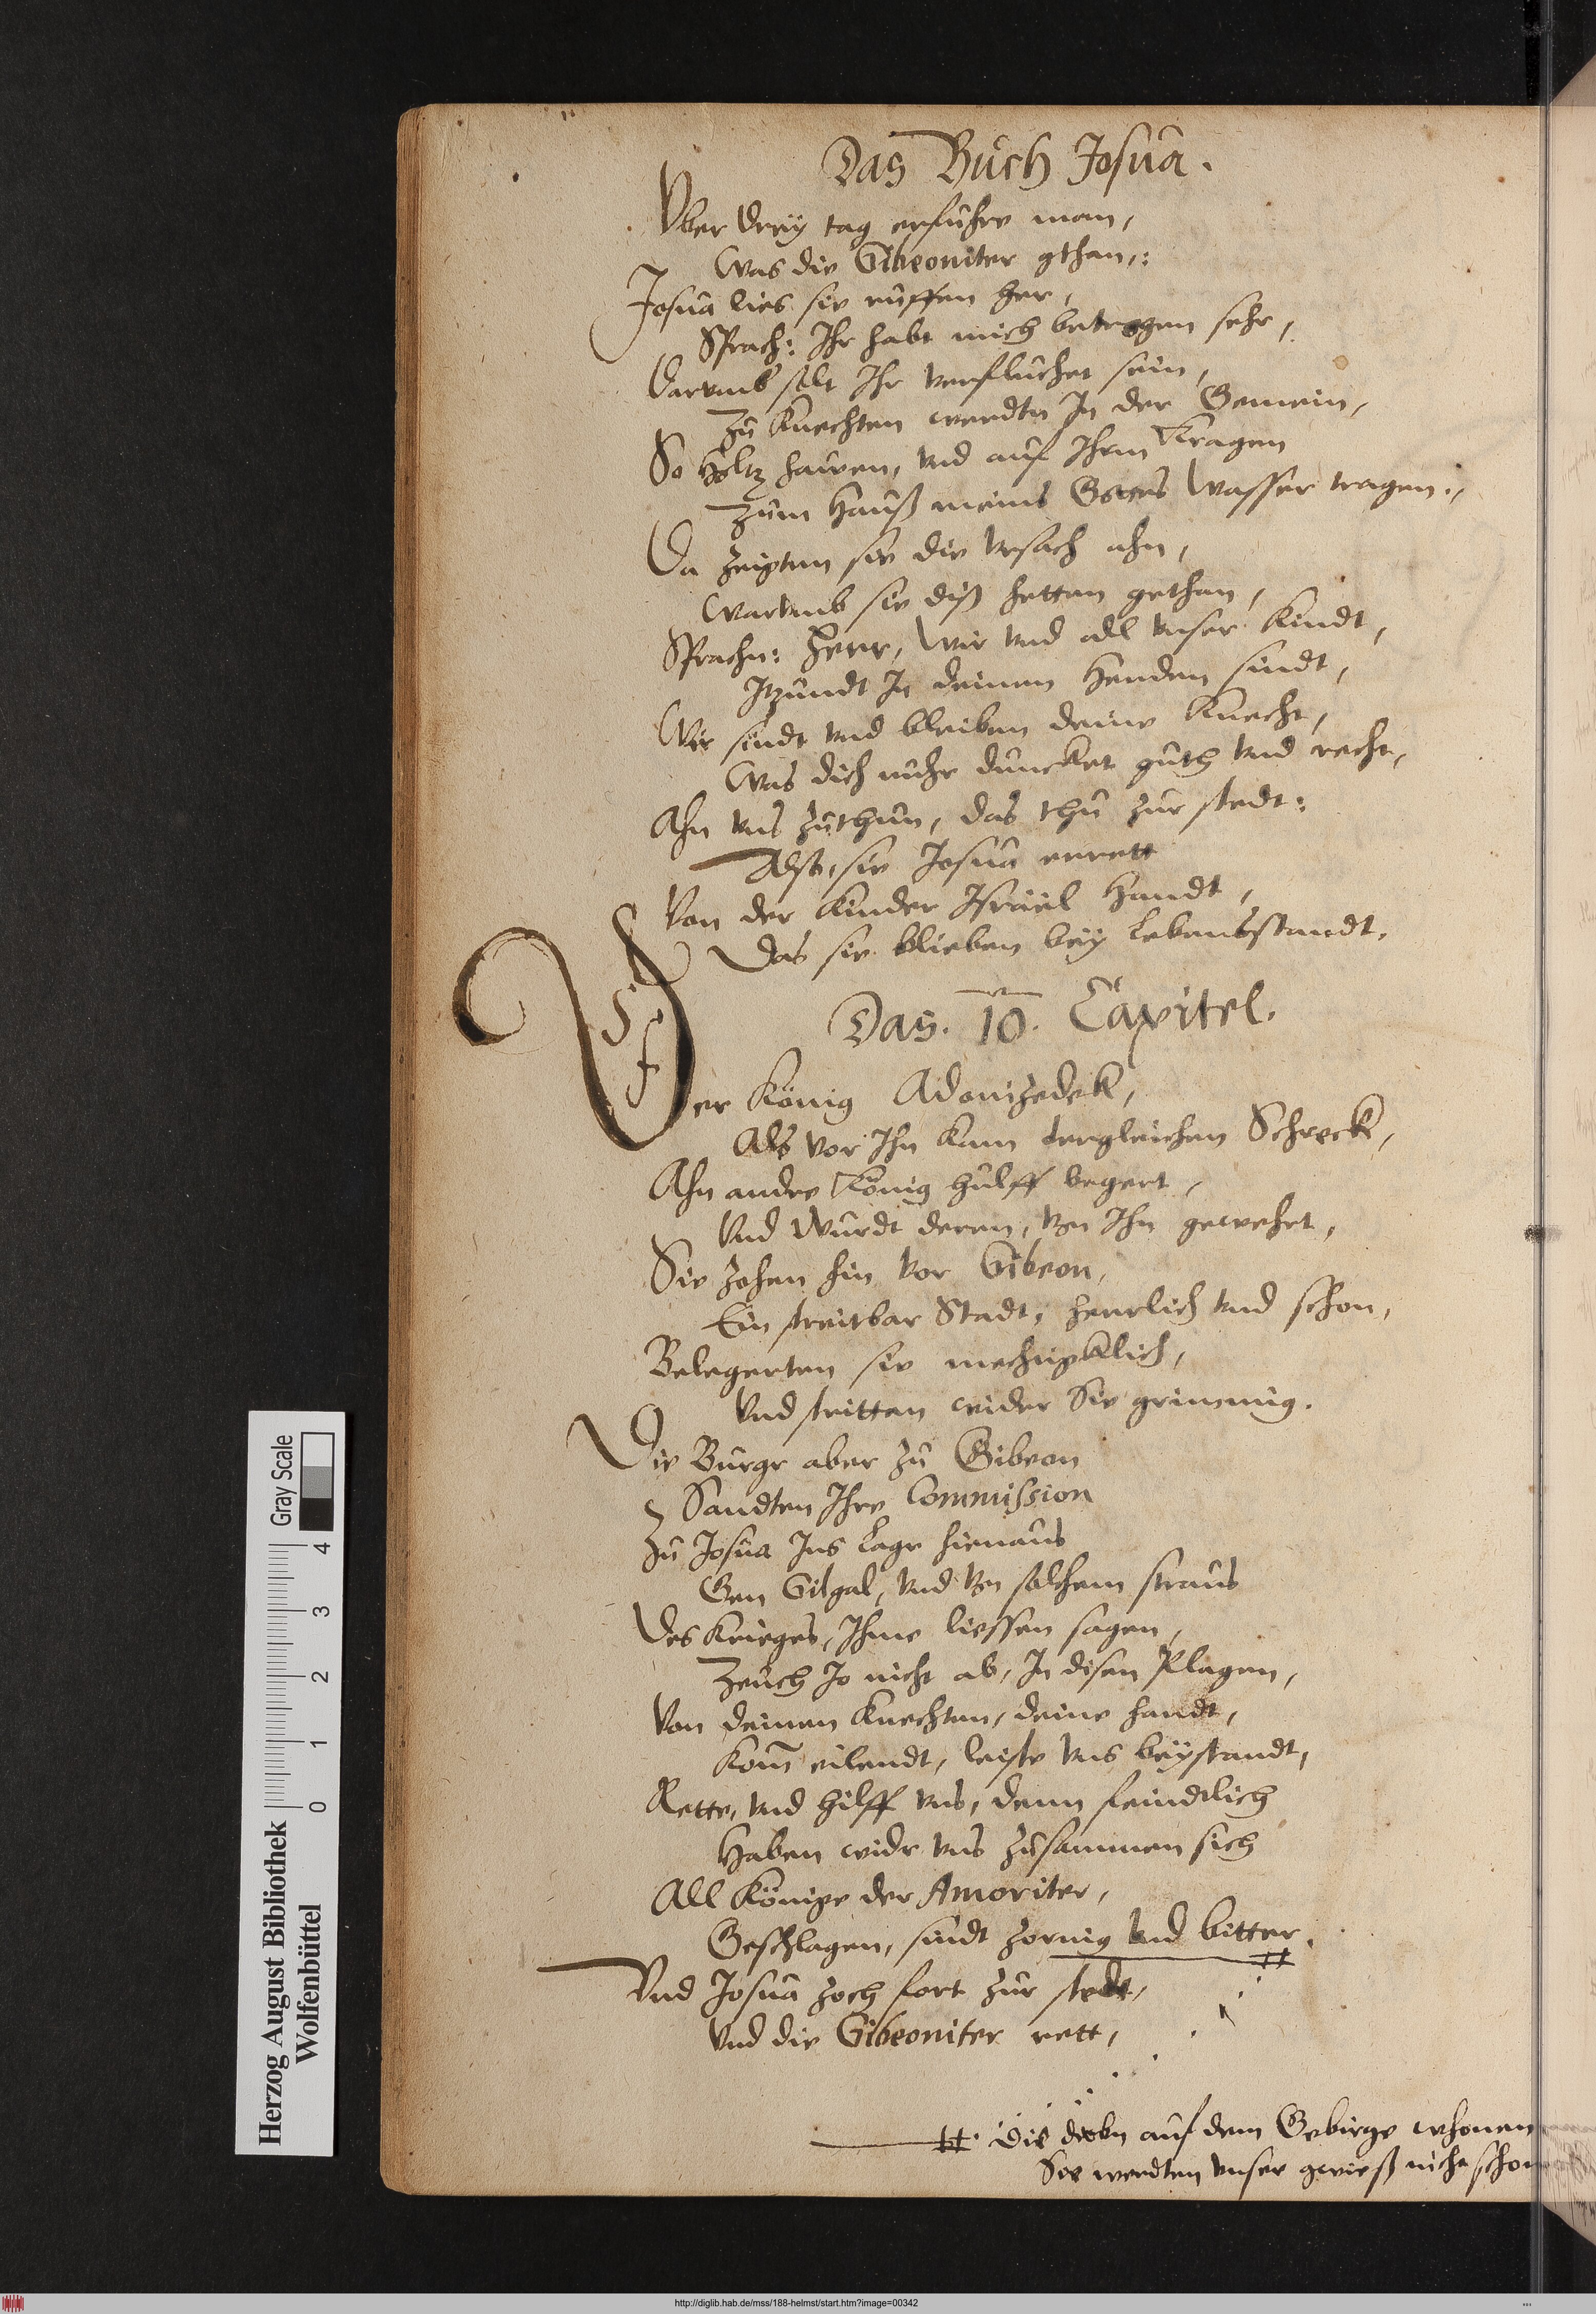 Das Buch Josua.
Vber drey tag erfuhre man,
Was die Gibeoniter gthan,:
Josua lies sie ruffen her,
Sprach: Ihr habt mich betrogen sehr,
Darumb solt Ihr verfluchet sein,
Zu Knechten werdtn In der Gemein,
So Holtz hawen, vnd auf Ihrm Kragen
Zum Hauß meins Gottes Wasser tragen.,
Da zeigten sie die vrsach ahn,
Warumb sie diß hetten gethan,
Sprachn: Herr, Wir vnd all vnser Kindt,
Itzundt In deinen Henden sindt,
Wir sindt vnd bleiben deine Knecht,
Was dich nuhr duncket guth vnd recht,
Ahn vns zuthun, das thu zur stedt:
Also, sie Josua errett
Von der Kinder Israel Handt,
Das sie blieben bey Lebensstandt.
Das. 10. Capitel.
Der König Adonizedek,
Als vor Ihn kam dergleichen Schreck,
Ahn andre König hulff begert,
Vnd wurdt deren, von Ihn gewehrt,
Sie zohen hin vor Gibeon,
Ein streitbar Stadt, herrlich vnd schon,
Belegerten sie mechtigklich,
Vnd stritten wider Sie grimmig.
Die Burgr aber zu Gibeon
Sandten Ihre Commission
Zu Josua Ins Lagr hienaus
Gen Gilgal, vnd von solchem straus
Des Krieges, Ihme liessen sagen,
Zeuch Jo nicht ab, In disen Plagen,
Von deinen Knechten, deine handt,
Kom̃ eilendt, leiste vns beystandt,
Rette, vnd hilff vns, denn feindtlich
Haben widr vns zusammen sich
All Könige der Amoriter,
Geschlagen, sindt zornig vnd bitter.
Vnd Josua zoch fort zur stedt,
Vnd die Gibeoniter rett,
Die drobn auf dem Gebirge whonen
Sie werdten vnser gwieß nicht schon
Herzog August Bibliothek
Wolfenbüttel
0 1 2 3 4
Gray Scale
http://diglib.hab.de/mss/188-helmst/start.htm?image=00342